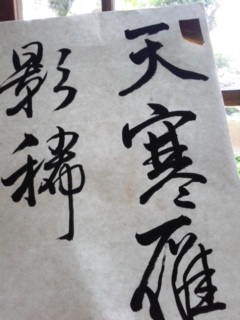 天寒雁
影稀